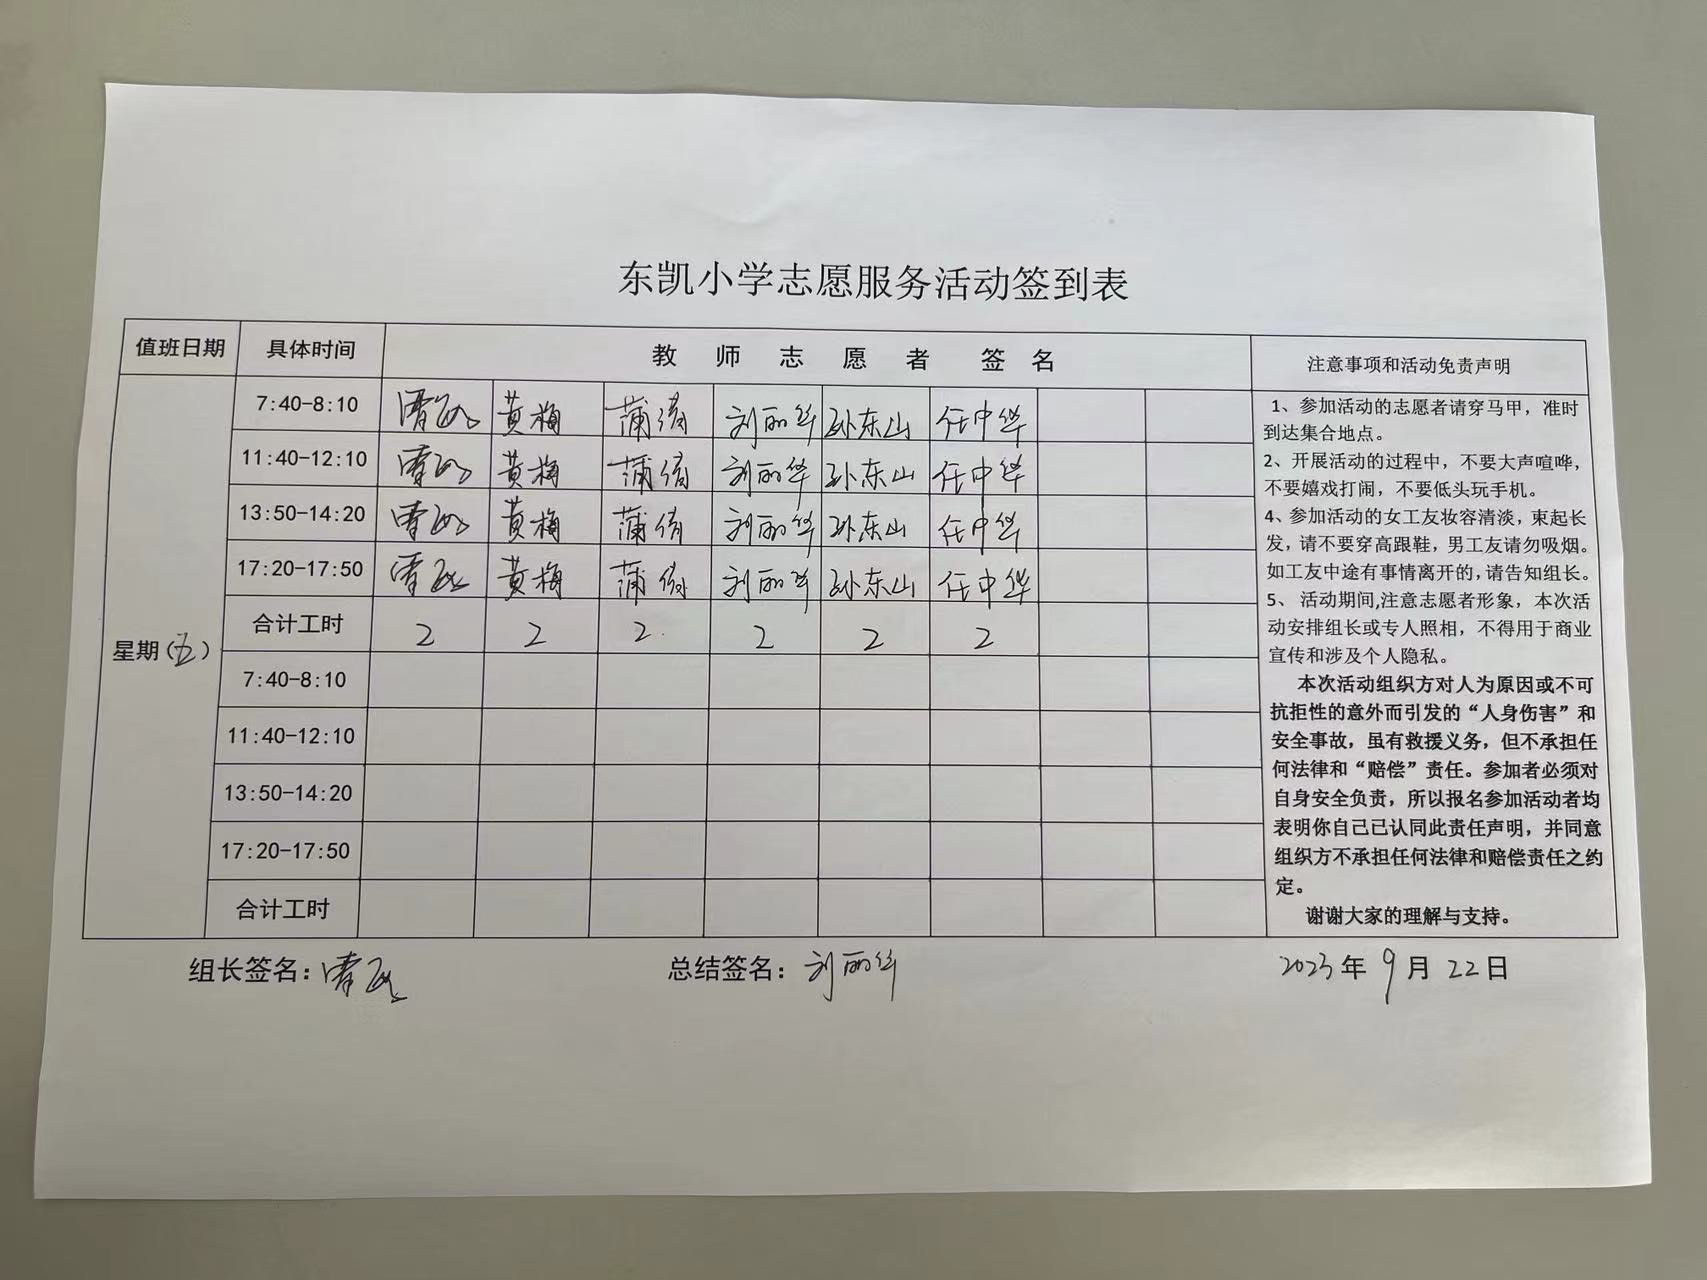 东凯小学志愿服务活动签到表
值班日期 具体时间 教师志愿者 签名 注意事项和活动免责声明
星期(五)
7:40-8:10 黄梅 蒲倩 刘丽华 孙东山 任中华
11:40-12:10 黄梅 蒲倩 刘丽华 孙东山 任中华
13:50-14:20 黄梅 蒲倩 刘丽华 孙东山 任中华
17:20-17:50 黄梅 蒲倩 刘丽华 孙东山 任中华
合计工时 2 2 2 2 2 2
7:40-8:10
11:40-12:10
13:50-14:20
17:20-17:50
合计工时
1、参加活动的志愿者请穿马甲，准时
到达集合地点。
2、开展活动的过程中，不要大声喧哗，
不要嬉戏打闹，不要低头玩手机。
4、参加活动的女工友妆容清淡，束起长
发，请不要穿高跟鞋，男工友请勿吸烟。
如工友中途有事情离开的，请告知组长。
5、 活动期间,注意志愿者形象，本次活
动安排组长或专人照相，不得用于商业
宣传和涉及个人隐私。
本次活动组织方对人为原因或不可
抗拒性的意外而引发的“人身伤害”和
安全事故，虽有救援义务，但不承担任
何法律和“赔偿”责任。参加者必须对
自身安全负责，所以报名参加活动者均
表明你自己已认同此责任声明，并同意
组织方不承担任何法律和赔偿责任之约
定。
谢谢大家的理解与支持。
组长签名： 总结签名：刘丽华 2023年9月22日